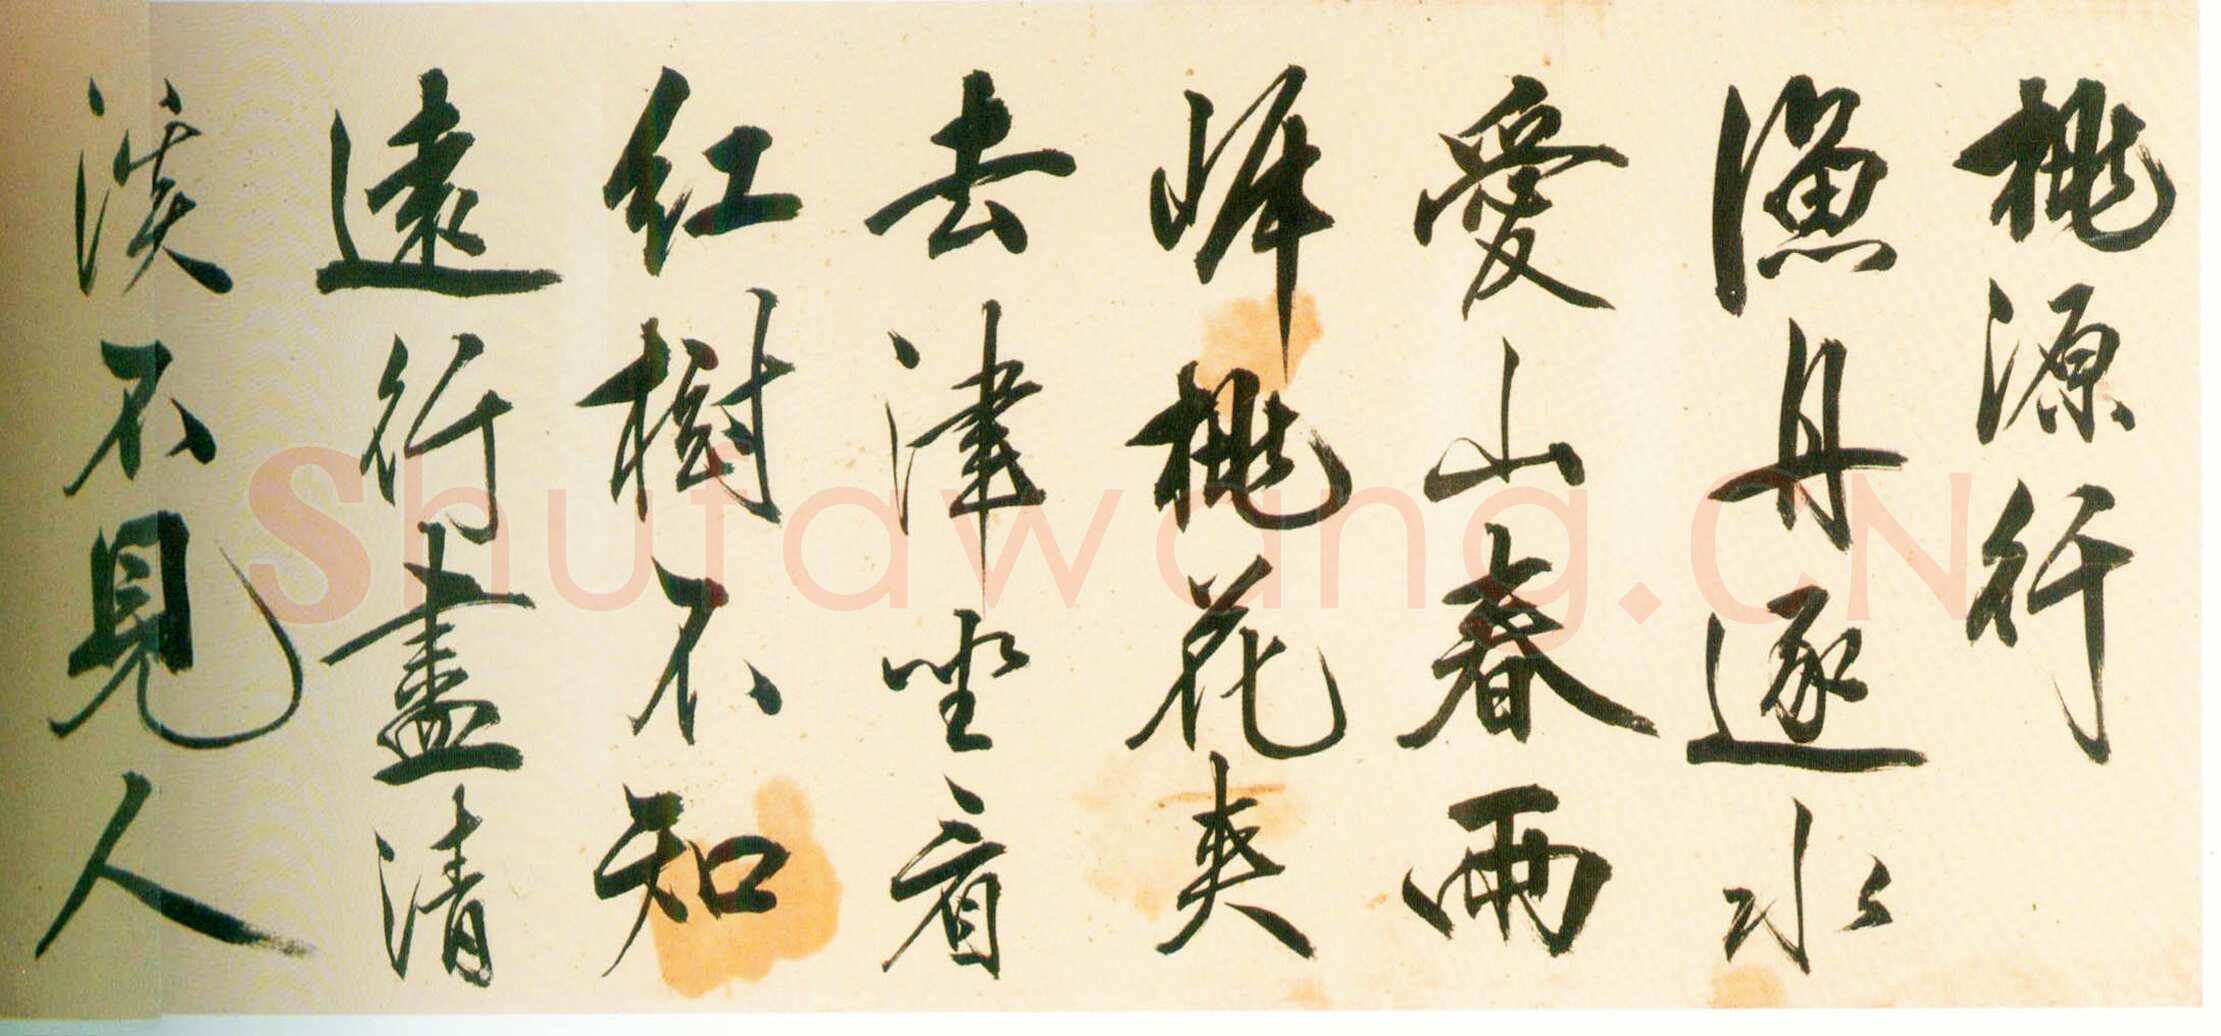 桃源行
漁舟逐水
愛山春兩
岸桃花夾
去津坐看
紅樹不知
遠行盡清
溪不見人
Shufawang.CN